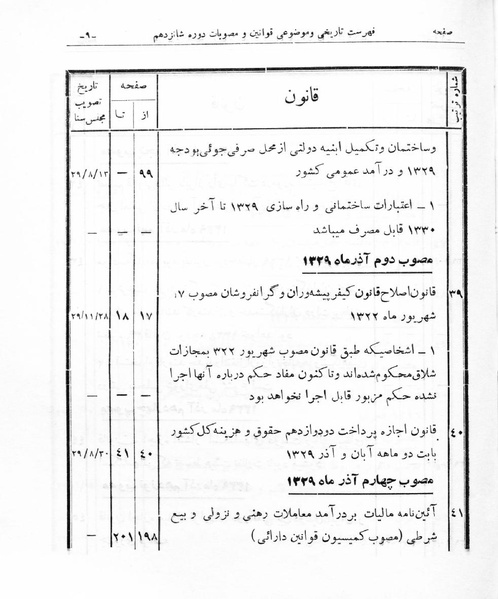 صفحه
فهرست تاریخی وموضوعی قوانین و مصوبات دوره شانزدهم
-۹-
شماره ترتیب
قانون
صفحه
از
تا
تاریخ
تصویب
مجلس سنا
وساختمان وتکمیل ابنیه دولتی از محل صرفه‌جوئی بودجه
۱۳۲۹ و درآمد عمومی کشور
۹۹
—
۲۹/۸/۱۳
۱ – اعتبارات ساختمانی و راه سازی ۱۳۲۹ تا آخر سال
۱۳۳۰ قابل مصرف میباشد
—
—
—
مصوب دوم آذرماه ۱۳۲۹
۳۹
قانون اصلاح قانون کیفر پیشه‌وران و گرانفروشان مصوب ۷
شهریور ماه ۱۳۲۲
۱۷
۱۸
۲۹/۱۱/۲۸
۱ – اشخاصیکه طبق قانون مصوب شهریور ۳۲۲ بمجازات
شلاق محکوم شده‌اند و تاکنون مفاد حکم درباره آنها اجرا
نشده حکم مزبور قابل اجرا نخواهد بود
—
—
—
۴۰
قانون اجازه پرداخت دو دوازدهم حقوق و هزینه کل کشور
بابت دو ماهه آبان و آذر ۱۳۲۹
۴۰
۴۱
۲۹/۸/۳۰
مصوب چهارم آذر ماه ۱۳۲۹
۴۱
آئین‌نامه مالیات بردرآمد معاملات رهنی و نزولی و بیع
شرطی (مصوب کمیسیون قوانین دارائی)
۱۹۸
۲۰۱
—